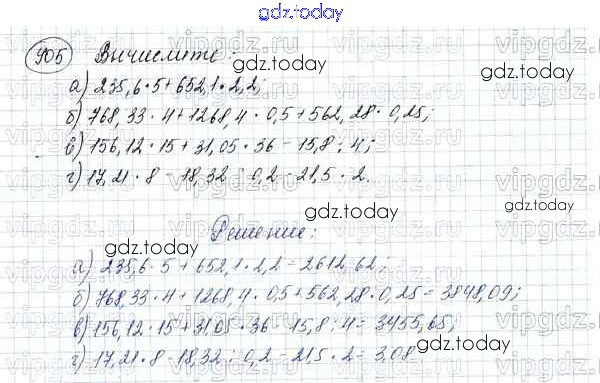 gdz.today
905 Вычислить:
gdz.today
а) 235,6 · 5 + 652,1 · 2,2;
б) 768,33 · 4 + 1268,4 · 0,5 + 562,28 · 0,25;
в) 156,12 · 15 + 31,05 · 36 - 15,8 : 4;
г) 17,21 · 8 - 18,32 : 0,2 - 21,5 · 2.
gdz.today
Решение:
gdz.today
а) 235,6 · 5 + 652,1 · 2,2 = 2612,62;
б) 768,33 · 4 + 1268,4 · 0,5 + 562,28 · 0,25 = 3848,09;
в) 156,12 · 15 + 31,05 · 36 - 15,8 : 4 = 3455,65;
г) 17,21 · 8 - 18,32 : 0,2 - 21,5 · 2 = 3,08
gdz.today
gdz.today